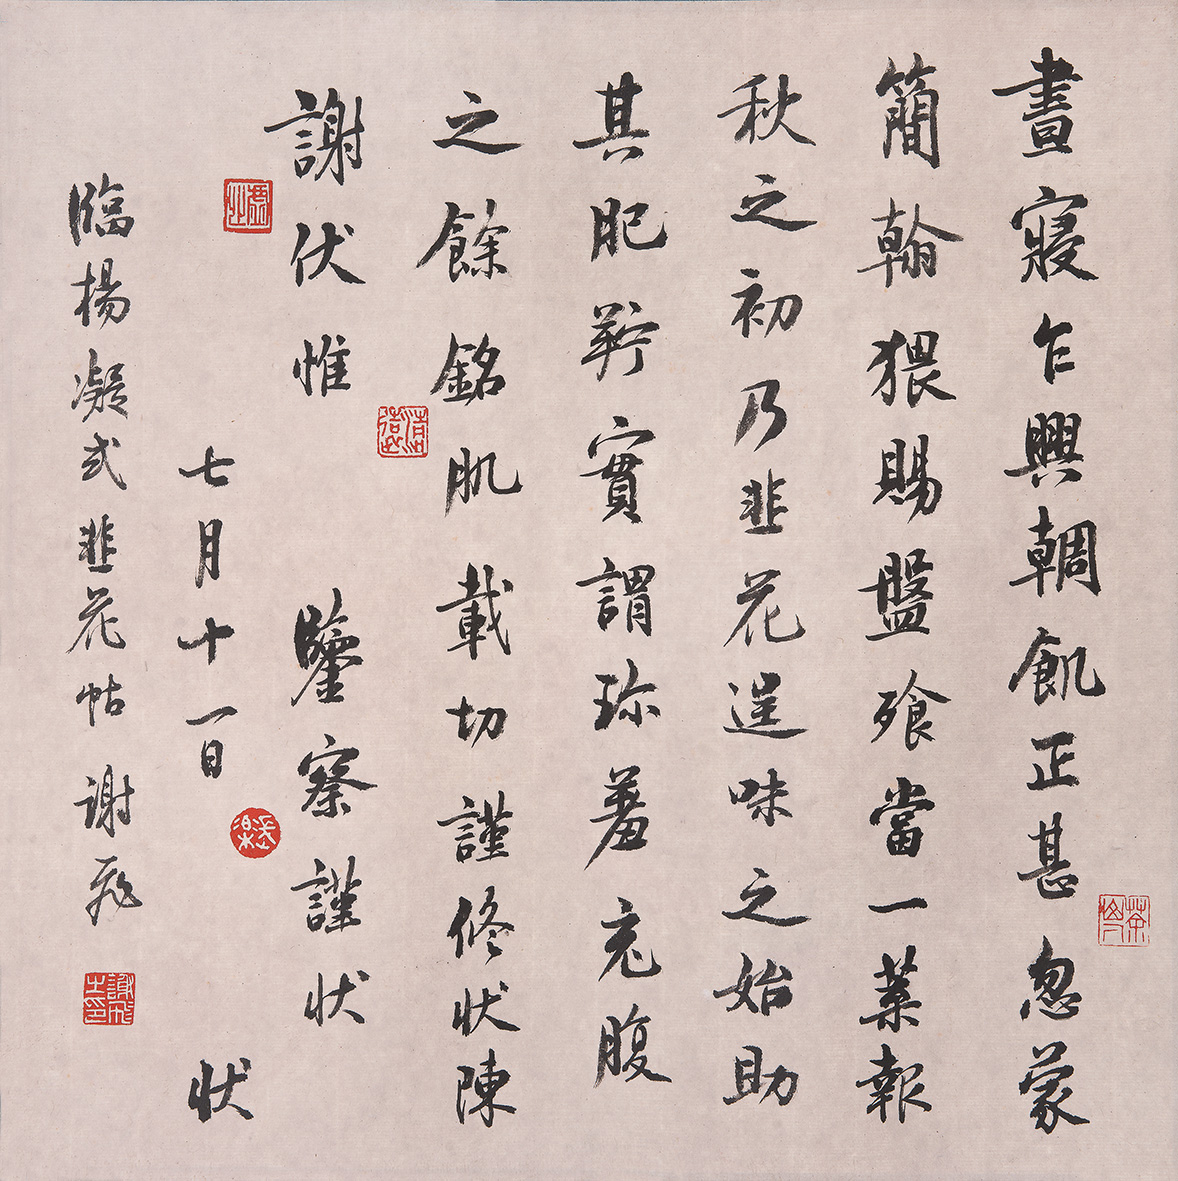 晝寢乍興輖飢正甚忽蒙
簡翰猥賜盤飱當一葉報
秋之初乃韭花逞味之始助
其肥羜實謂珍羞充腹
之餘銘肌載切謹修狀陳
謝伏惟 鑒察謹狀
七月十一日 狀
臨楊凝式韭花帖 謝飛
長樂
謝飛之印